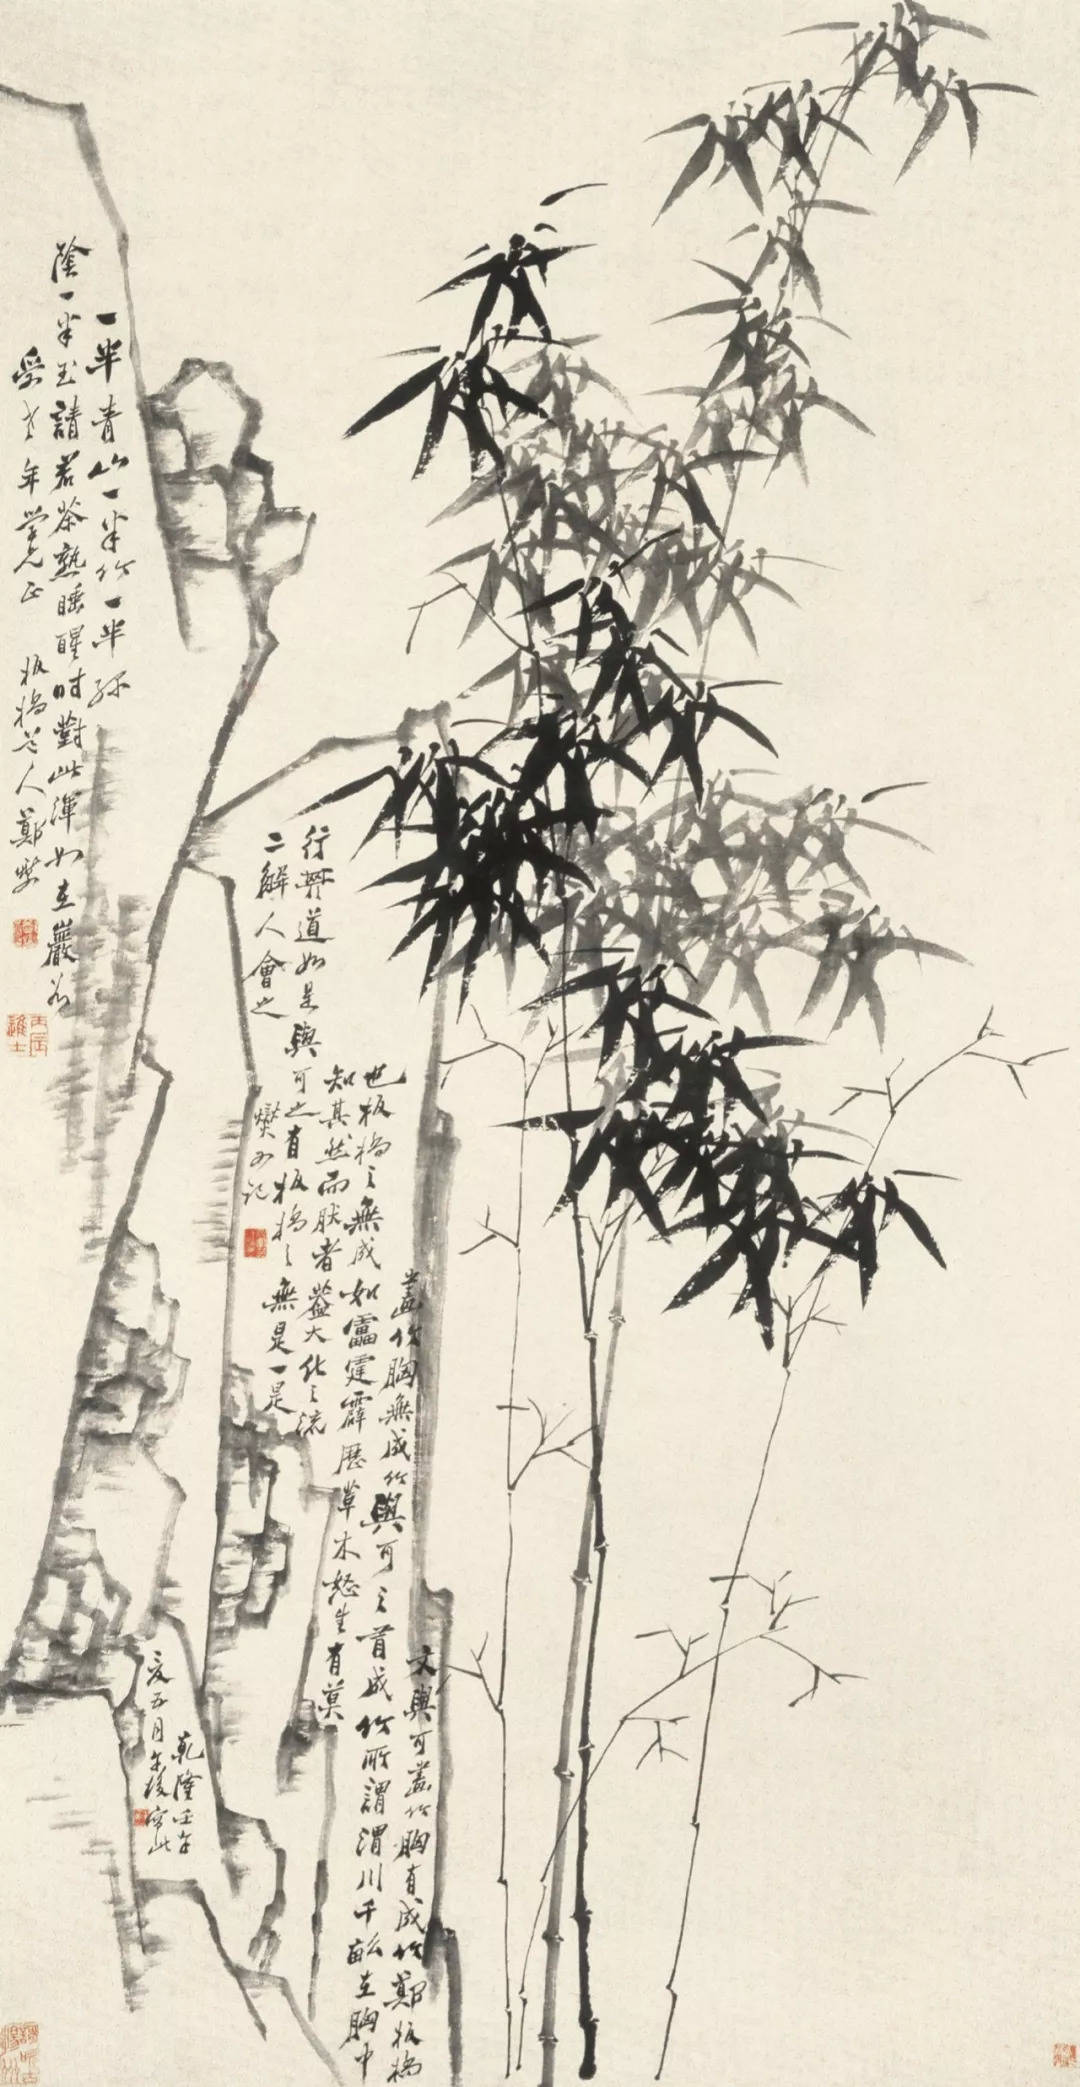 一半青山一半竹一半綠
陰一半玉請君茶熟睡醒時對此渾如在巖谷
受老年學兄正 板橋老人鄭燮
丙辰進士
文與可畫竹胸有成竹鄭板橋
畫竹胸無成竹與可之有成竹所謂渭川千畝在胸中
也板橋之無成如雷霆霹歷草木怒生有莫
知其然而然者蓋大化之流
行其道如是與可之有板橋之無是一是
二解人會之
燮又記
乾隆壬午
夏五月午後寫此